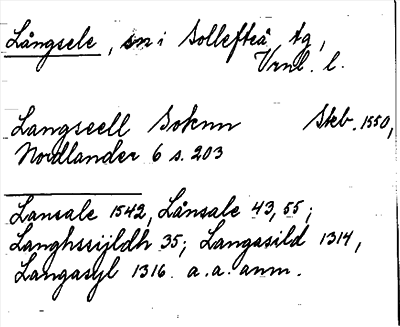 Långsele, sn i Sollefteå tg,
Vrnl. l.
Langseell Soknn Skb. 1550,
Nordlander 6 s. 203
Lansale 1542, Lånsale 43, 55;
Langhssijldh 35; Langasild 1314,
Langasyl 1316. a. a. anm.